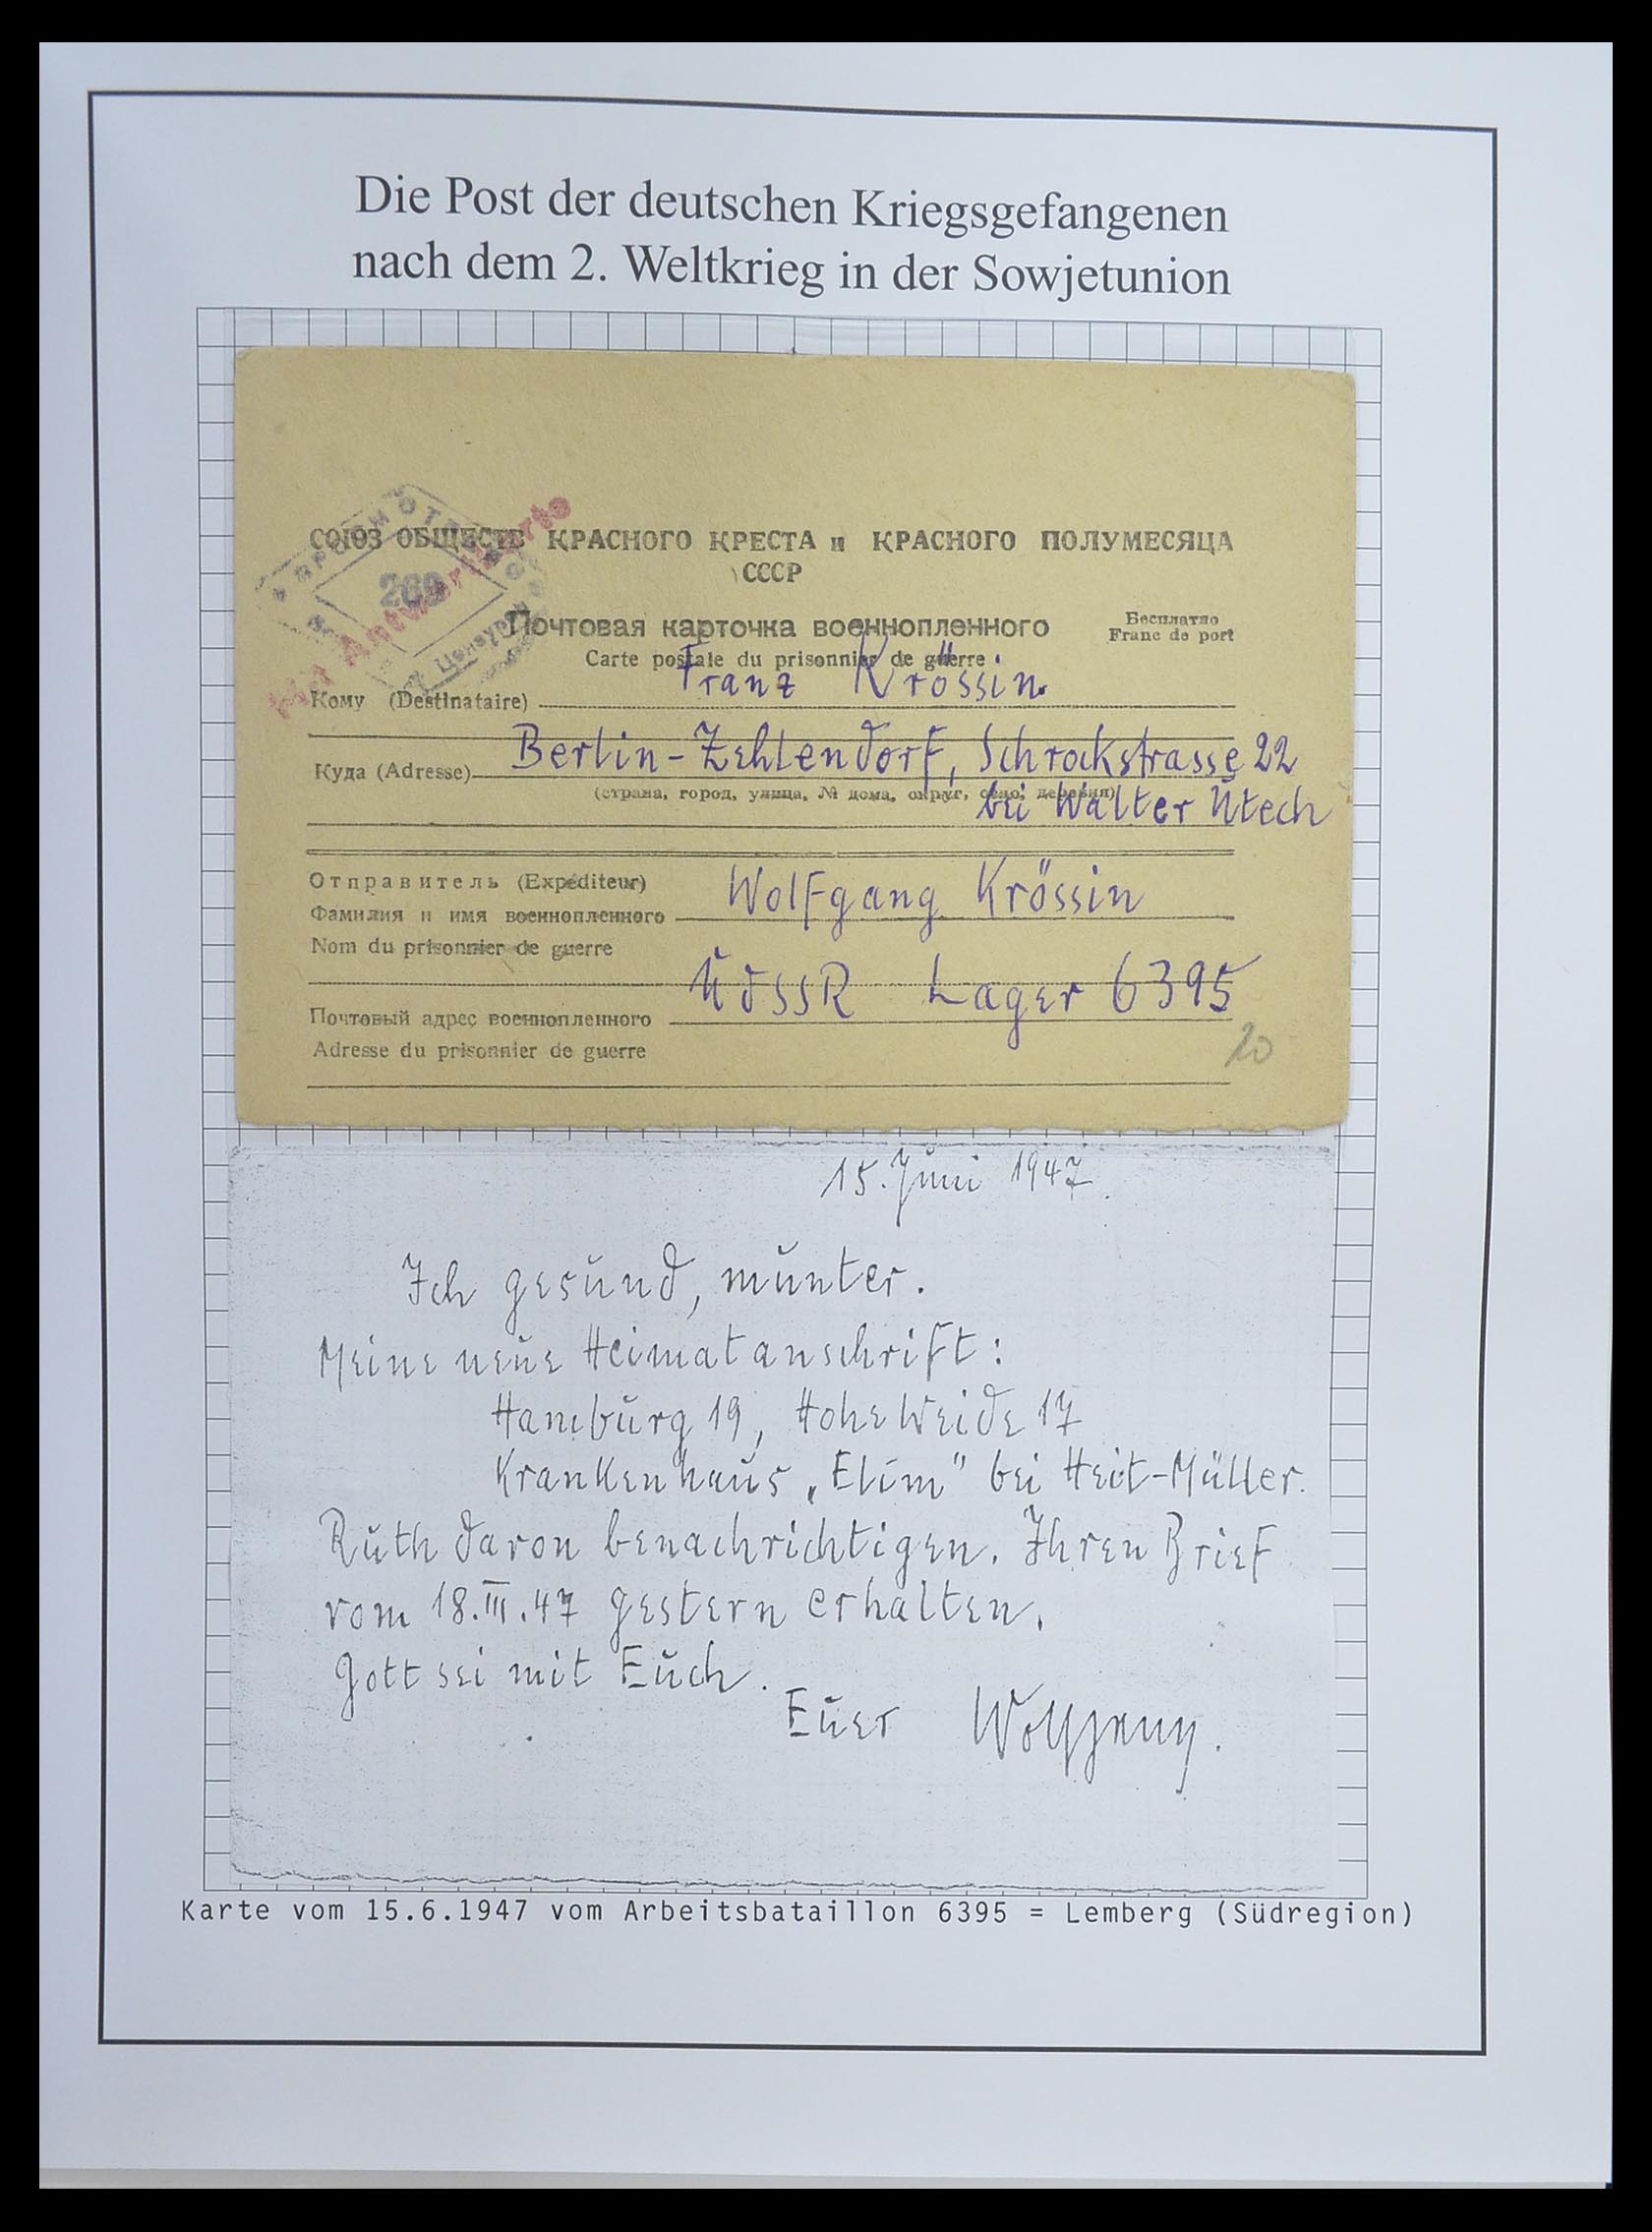 Die Post der deutschen Kriegsgefangenen
nach dem 2. Weltkrieg in der Sowjetunion
СОЮЗ ОБЩЕСТВ КРАСНОГО КРЕСТА и КРАСНОГО ПОЛУМЕСЯЦА
СССР
269
Antwortkarte
Почтовая карточка военнопленного
Бесплатно
Franc de port
Carte postale du prisonnier de guerre
Кому (Destinataire) Franz Krössin.
Куда (Adresse) Berlin-Zehlendorf, Schrockstrasse 22
(страна, город, улица, № дома, округ, село, деревня)
bei Walter Utech
Отправитель (Expéditeur)
Фамилия и имя военнопленного Wolfgang Krössin
Nom du prisonnier de guerre
Почтовый адрес военнопленного UdSSR Lager 6395
Adresse du prisonnier de guerre
20
15. Juni 1947.
Ich gesund, munter.
Meine neue Heimatanschrift:
Hamburg 19, Hohe Weide 17
Krankenhaus „Elim" bei Heit-Müller.
Ruth davon benachrichtigen. Ihren Brief
vom 18.III.47 gestern erhalten.
Gott sei mit Euch.
Euer Wolfgang.
Karte vom 15.6.1947 vom Arbeitsbataillon 6395 = Lemberg (Südregion)